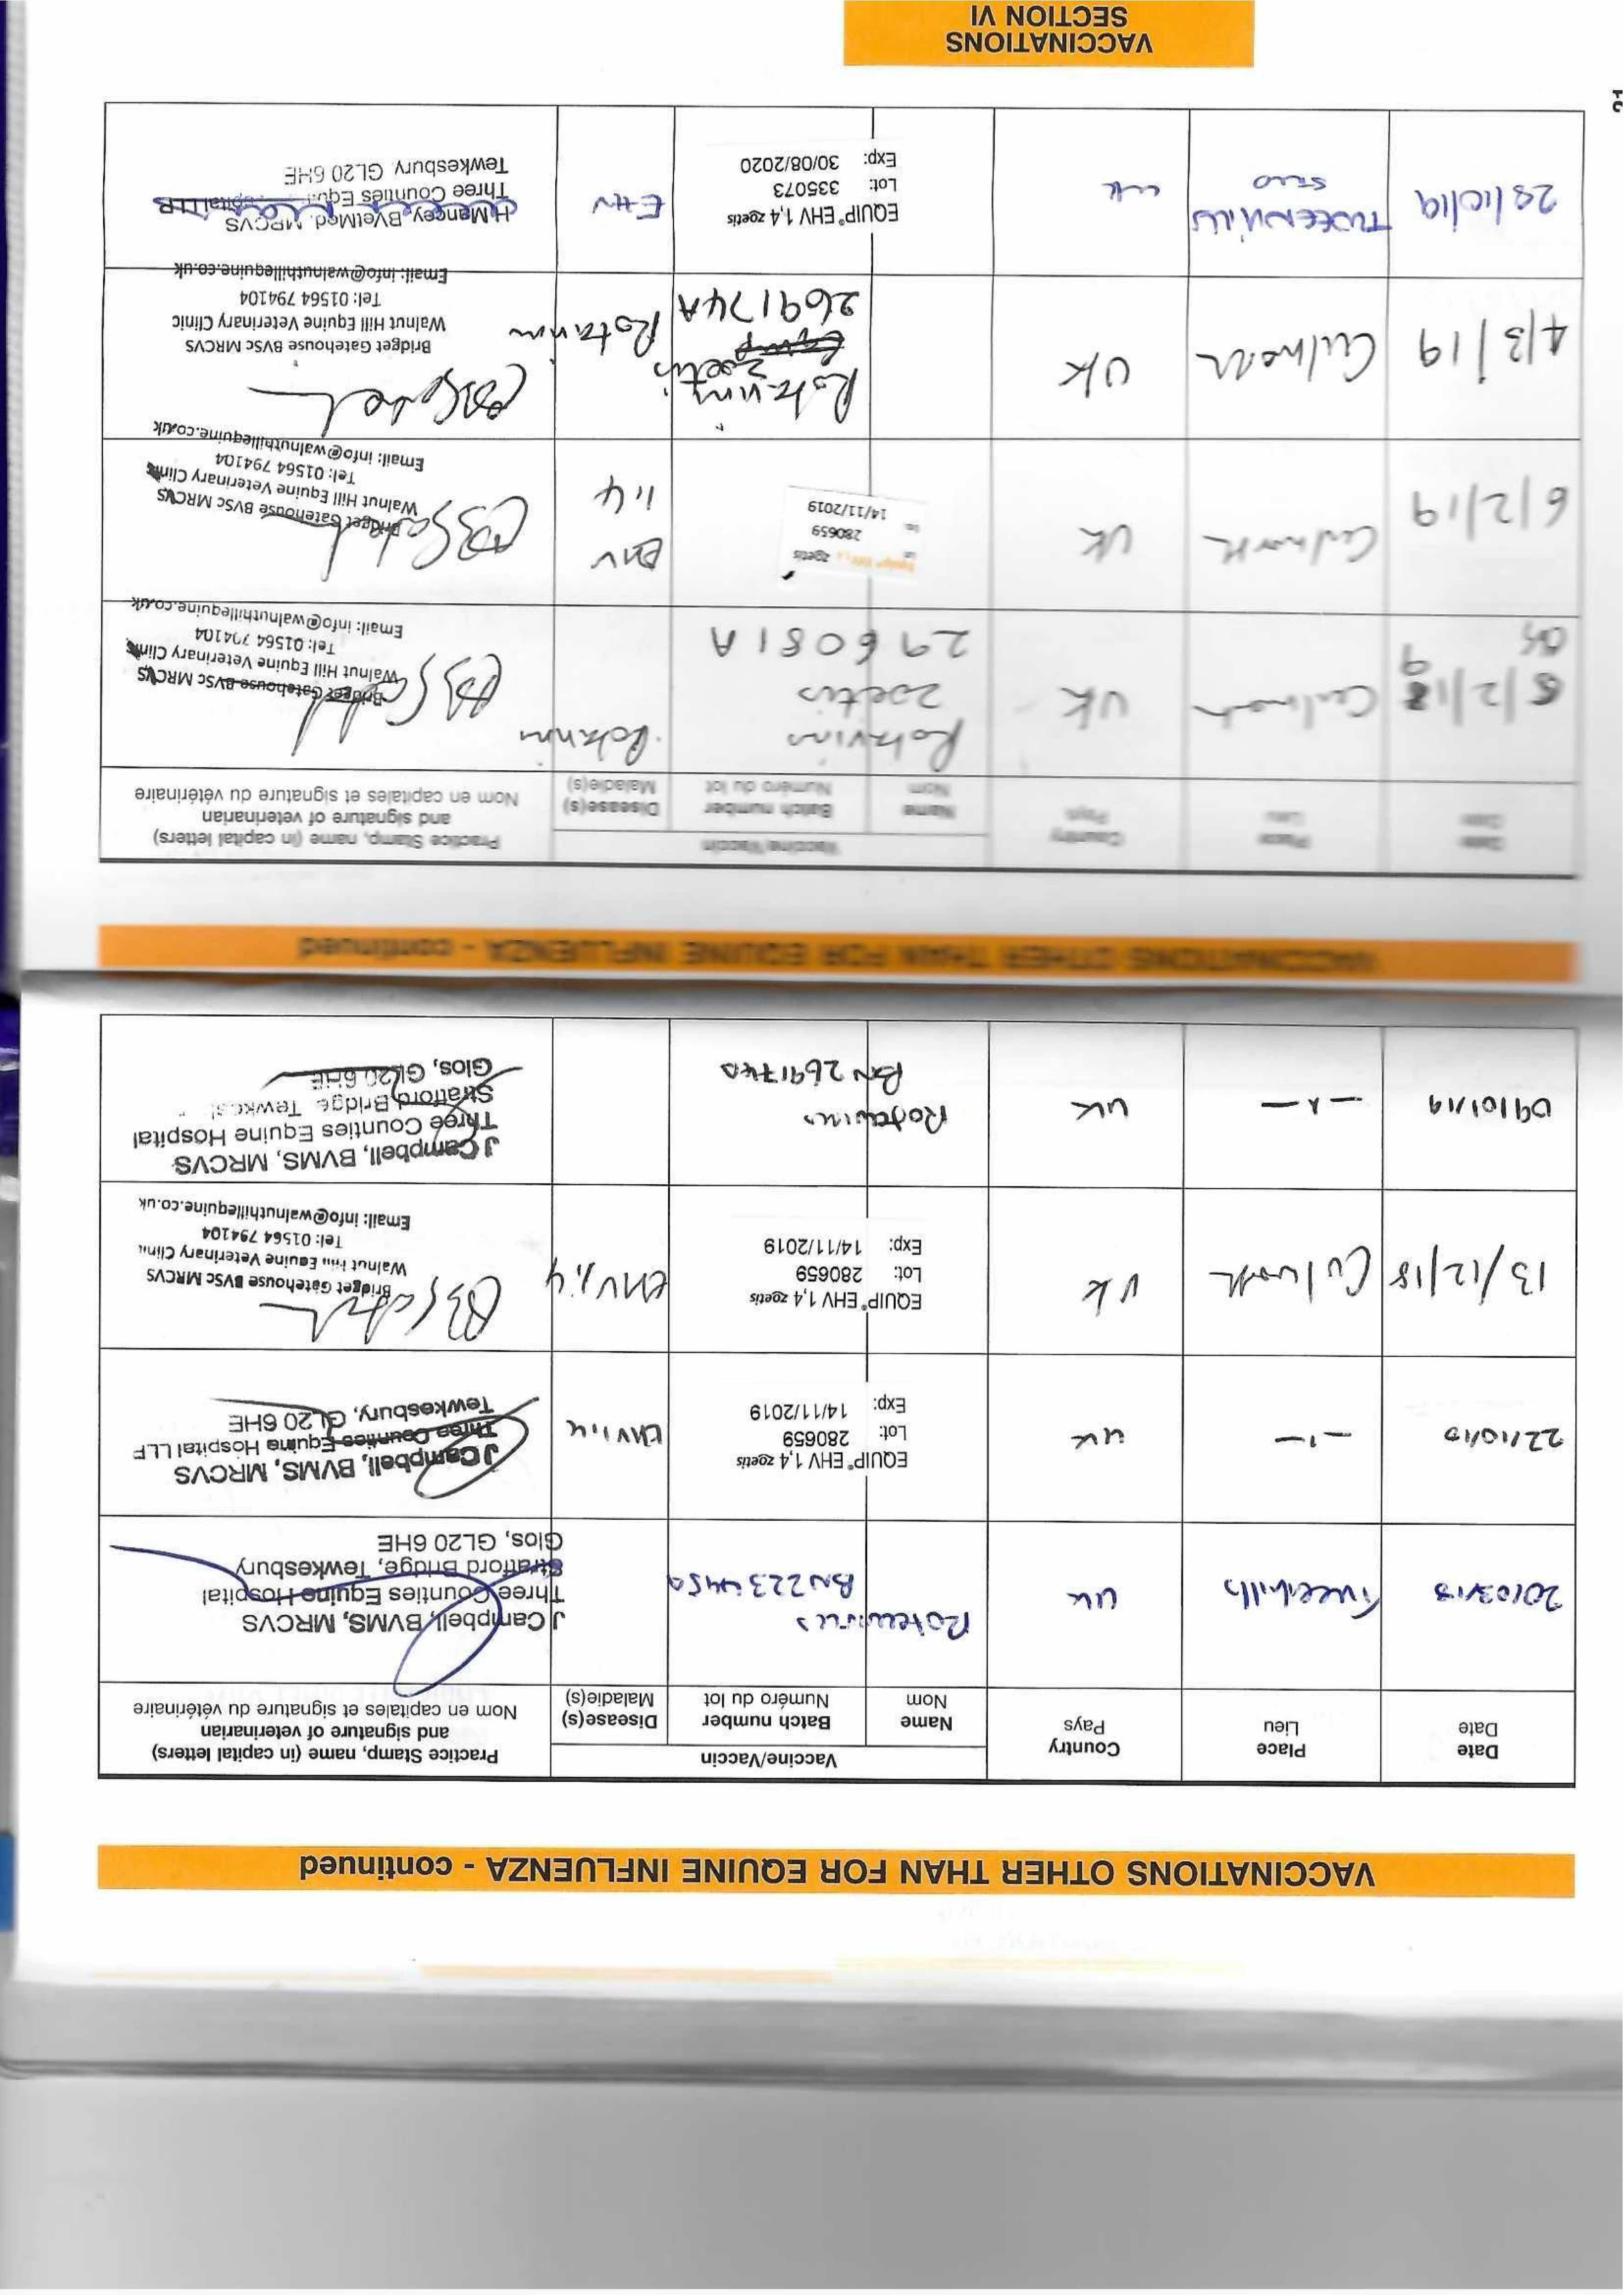 VACCINATIONS OTHER THAN FOR EQUINE INFLUENZA - continued
Date Place Country Vaccine/Vaccin Practice Stamp, name (in capital letters)
and signature of veterinarian
Date Lieu Pays Name Batch number Disease(s) Nom en capitales et signature du vétérinaire
Nom Numéro du lot Maladie(s)
20/03/18 Tweenhills UK Rotavirus
BN
J Campbell, BVMS, MRCVS
Three Counties Equine Hospital
Stratford Bridge, Tewkesbury
Glos, GL20 6HE
22/10/18 -"- UK EQUIP® EHV 1,4 zoetis
Lot: 280659
Exp: 14/11/2019
EHV1,4
J Campbell, BVMS, MRCVS
Three Counties Equine Hospital LLP
Tewkesbury, GL20 6HE
13/12/18 Culworth UK EQUIP® EHV 1,4 zoetis
Lot: 280659
Exp: 14/11/2019
EHV1,4
Bridget Gatehouse BVSc MRCVS
Walnut Hill Equine Veterinary Clinic
Tel: 01564 794104
Email: info@walnuthillequine.co.uk
09/01/19 -"- UK Rotavirus
BN 269174A
J Campbell, BVMS, MRCVS
Three Counties Equine Hospital
Stratford Bridge, Tewkes
Glos, GL20 6HE
VACCINATIONS OTHER THAN FOR EQUINE INFLUENZA - continued
Date Place Country Vaccine/Vaccin Practice Stamp, name (in capital letters)
and signature of veterinarian
Date Lieu Pays Name Batch number Disease(s) Nom en capitales et signature du vétérinaire
Nom Numéro du lot Maladie(s)
/2/19 Culworth UK Rotavirus
zoetis
296081A
Rotavirus
Bridget Gatehouse BVSc MRCVS
Walnut Hill Equine Veterinary Clinic
Tel: 01564 794104
Email: info@walnuthillequine.co.uk
6/2/19 Culworth UK zoetis
280659
14/11/2019
EHV
1,4
Bridget Gatehouse BVSc MRCVS
Walnut Hill Equine Veterinary Clinic
Tel: 01564 794104
Email: info@walnuthillequine.co.uk
4/3/19 Culworth UK Rotavirus
zoetis
Equip
269174A
Rotavirus
Bridget Gatehouse BVSc MRCVS
Walnut Hill Equine Veterinary Clinic
Tel: 01564 794104
Email: info@walnuthillequine.co.uk
/10/19 TWEENHILLS
STUD
UK EQUIP® EHV 1,4 zoetis
Lot: 335073
Exp: 30/08/2020
EHV
H Mancey, BVetMed, MRCVS
Three Counties Equ spital LLP
Tewkesbury GL20 6HE
VACCINATIONS
SECTION VI